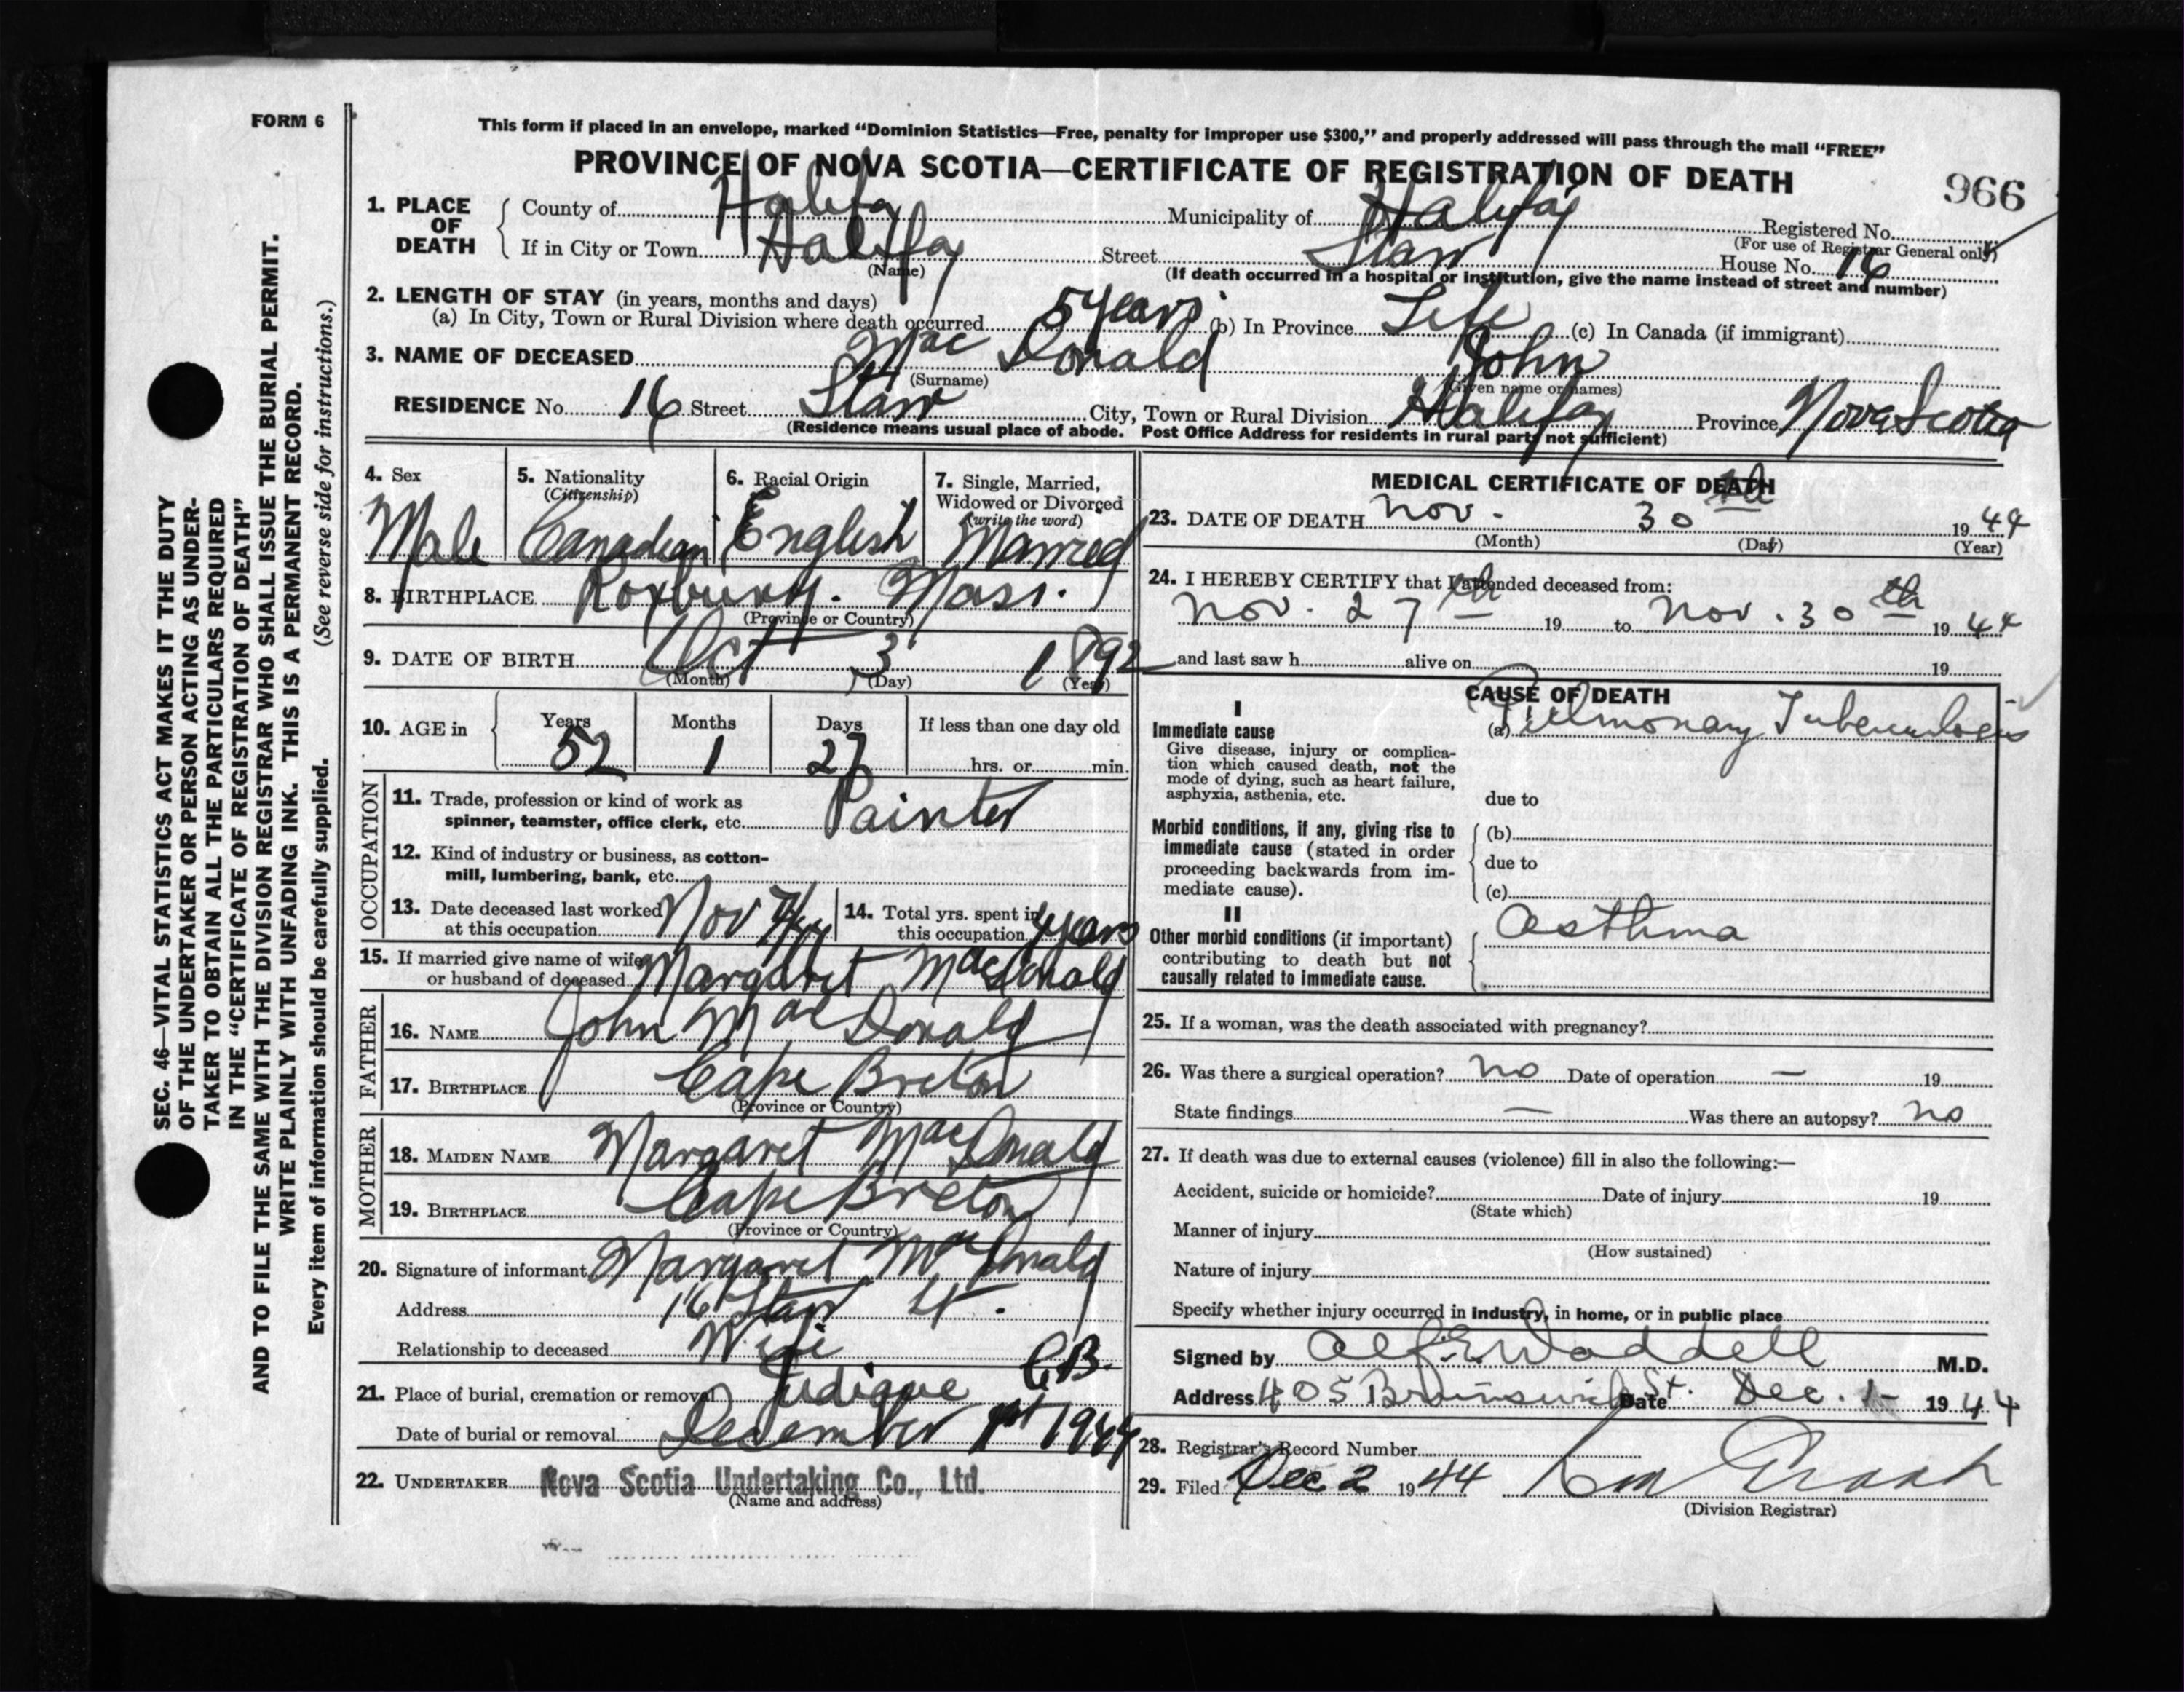 FORM 6
This form if placed in an envelope, marked "Dominion Statistics—Free, penalty for improper use $300," and properly addressed will pass through the mail "FREE"
PROVINCE OF NOVA SCOTIA—CERTIFICATE OF REGISTRATION OF DEATH
966
1. PLACE OF DEATH County of Halifax Municipality of Halifax Registered No.
(For use of Registrar General only)
If in City or Town Halifax Street Starr House No. 16
(Name) (If death occurred in a hospital or institution, give the name instead of street and number)
2. LENGTH OF STAY (in years, months and days)
(a) In City, Town or Rural Division where death occurred 5 years (b) In Province Life (c) In Canada (if immigrant)
3. NAME OF DECEASED Mac Donald John
(Surname) (Given name or names)
RESIDENCE No. 16 Street Starr City, Town or Rural Division Halifax Province Nova Scotia
(Residence means usual place of abode. Post Office Address for residents in rural parts not sufficient)
4. Sex Male
5. Nationality (Citizenship) Canadian
6. Racial Origin English
7. Single, Married, Widowed or Divorced (write the word) Married
8. BIRTHPLACE Roxbury. Mass.
(Province or Country)
9. DATE OF BIRTH Oct 3 1892
(Month) (Day) (Year)
10. AGE in Years 52 Months 1 Days 27 If less than one day old
hrs. or min.
OCCUPATION
11. Trade, profession or kind of work as
spinner, teamster, office clerk, etc. Painter
12. Kind of industry or business, as cotton-
mill, lumbering, bank, etc.
13. Date deceased last worked at this occupation Nov 7/44
14. Total yrs. spent in this occupation 4 years
15. If married give name of wife
or husband of deceased Margaret MacDonald
FATHER
16. NAME John MacDonald
17. BIRTHPLACE Cape Breton
(Province or Country)
MOTHER
18. MAIDEN NAME Margaret MacDonald
19. BIRTHPLACE Cape Breton
(Province or Country)
20. Signature of informant Margaret MacDonald
Address 16 Starr St.
Relationship to deceased Wife
21. Place of burial, cremation or removal Judique C.B.
Date of burial or removal December 1st 1944
22. UNDERTAKER Nova Scotia Undertaking Co., Ltd.
(Name and address)
MEDICAL CERTIFICATE OF DEATH
23. DATE OF DEATH Nov. 30th 1944
(Month) (Day) (Year)
24. I HEREBY CERTIFY that I attended deceased from:
Nov. 27th 19 to Nov. 30th 1944
and last saw h alive on 19
CAUSE OF DEATH
I
Immediate cause (a) Pulmonary Tuberculosis
Give disease, injury or complica-
tion which caused death, not the
mode of dying, such as heart failure,
asphyxia, asthenia, etc.
due to
Morbid conditions, if any, giving rise to
immediate cause (stated in order
proceeding backwards from im-
mediate cause).
(b)
due to
(c)
II
Other morbid conditions (if important)
contributing to death but not
causally related to immediate cause.
Asthma
25. If a woman, was the death associated with pregnancy?
26. Was there a surgical operation? no Date of operation — 19
State findings — Was there an autopsy? no
27. If death was due to external causes (violence) fill in also the following:—
Accident, suicide or homicide? Date of injury 19
(State which)
Manner of injury
(How sustained)
Nature of injury
Specify whether injury occurred in industry, in home, or in public place
Signed by Alf. E. Waddell M.D.
Address 405 Brunswick St. Date Dec. 1- 1944
28. Registrar's Record Number
29. Filed Dec 2 1944
(Division Registrar)
SEC. 46—VITAL STATISTICS ACT MAKES IT THE DUTY
OF THE UNDERTAKER OR PERSON ACTING AS UNDER-
TAKER TO OBTAIN ALL THE PARTICULARS REQUIRED
IN THE "CERTIFICATE OF REGISTRATION OF DEATH"
AND TO FILE THE SAME WITH THE DIVISION REGISTRAR WHO SHALL ISSUE THE BURIAL PERMIT.
WRITE PLAINLY WITH UNFADING INK. THIS IS A PERMANENT RECORD.
Every item of information should be carefully supplied. (See reverse side for instructions.)